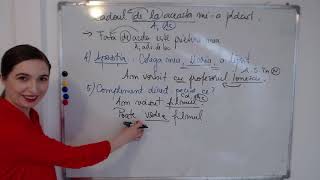 Cadoul de la aceasta mi-a plăcut.
Fata de acolo este prietena mea
4) Apoziția: Colega mea, Maria, a lipsit.
Am vorbit cu profesorul Ionescu.
5) Complement direct: pe cine? ce?
Am văzut filmul.
Poate vedea filmul